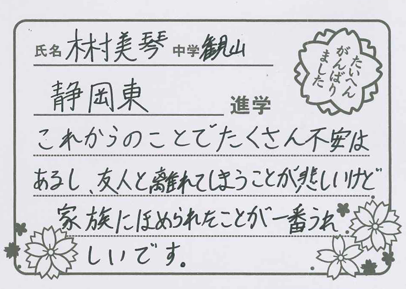 氏名 林村美琴 中学 観山
たいへん
がんばり
ました
静岡東 進学
これからのことでたくさん不安は
あるし、友人と離れてしまうことが悲しいけど
家族にほめられたことが一番うれ
しいです。